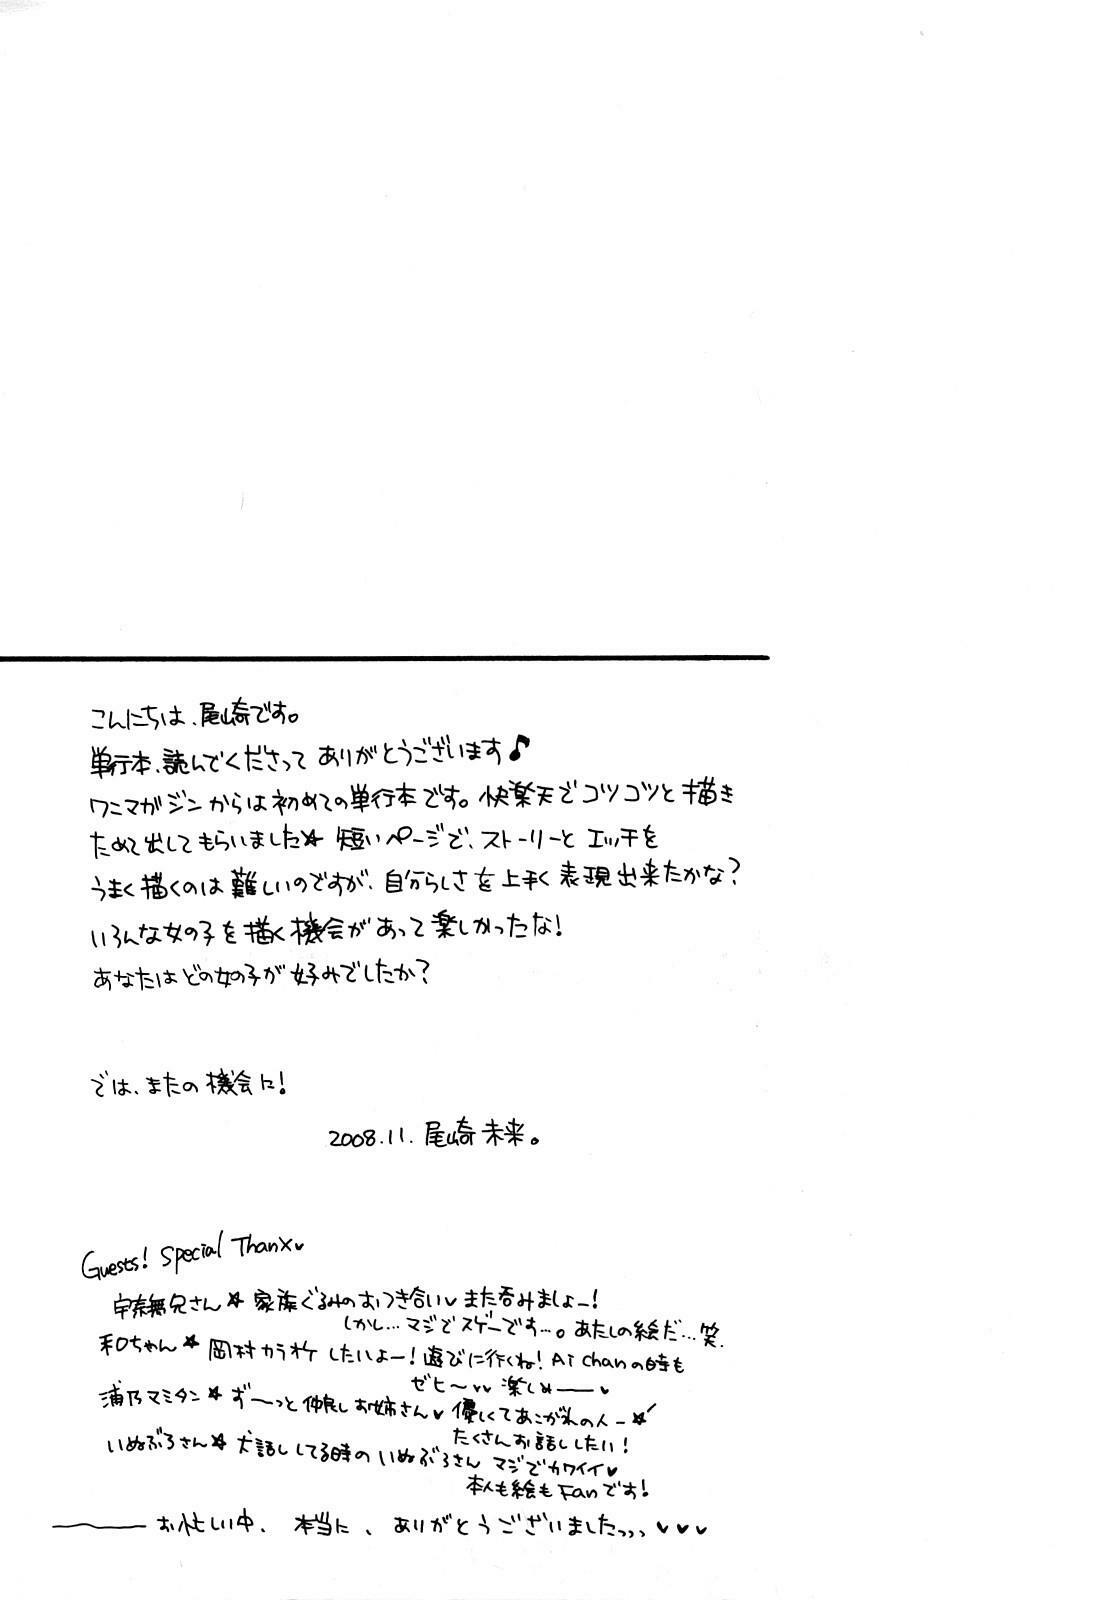 こんにちは、尾崎です。
単行本、読んでくださって ありがとうございます♪
ワニマガジンからは初めての単行本です。快楽天でコツコツと描き
ためて出してもらいました☆ 短いページで、ストーリーと エッチを
うまく描くのは難しいのですが、自分らしさを上手く表現出来たかな?
いろんな女の子を描く機会があって楽しかったな!
あなたはどの女の子が好みでしたか?
では、またの機会に!
2008.11. 尾崎未来。
Guests! Special Thanx♥
宇奈無兄さん☆ 家族ぐるみのおつき合い♥ また呑みましょー!
しかし…マジでスゲーです…。あたしの絵だ…笑.
和ちゃん☆ 岡村カラオケしたいよー!遊びに行くね!Ai Chanの時も
ゼヒ〜♥♥ 楽しめ――♥
浦乃マミタン☆ ず〜っと仲良しお姉さん♥ 優しくてあこがれの人ー☆
たくさんお話ししたい!
いぬぶろさん☆ 犬話ししてる時の いぬぶろさん マジでカワイイ♥
本人も絵も Fanです!
―――お忙しい中、本当に、ありがとうございましたっっっ♥♥♥